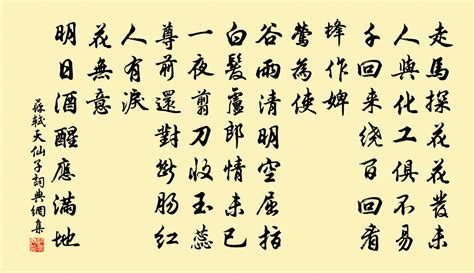 走馬探花花發未
人與化工俱不易
千回来绕百回看
蜂作婢
鶯為使
谷雨清明空屈指
白髮盧郎情未已
一夜剪刀收玉蕊
尊前還對斷腸紅
人有淚
花無意
明日酒醒應滿地
蘇軾天仙子詞典網集